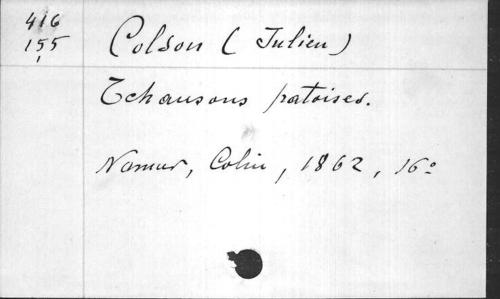 416
155
Colson (Julien)
Tchansons patoises.
Namur, Colin, 1862, 16º